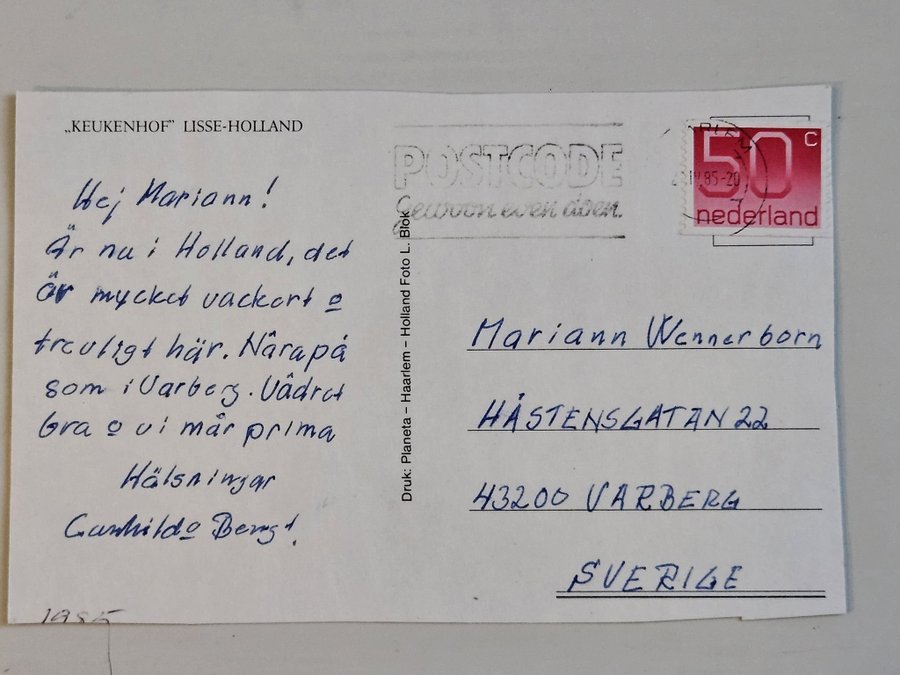 „KEUKENHOF” LISSE-HOLLAND
Hej Mariann!
Är nu i Holland, det
är mycket vackert o
trevligt här. Närapå
som i Varberg. Vädret
bra o vi mår prima
Hälsningar
Gunhild o Bengt.
1985
Druk: Planeta – Haarlem – Holland Foto L. Blok
POSTCODE
Gewoon even doen.
50 c
nederland
IV.85-20
Mariann Wennerborn
HÅSTENSGATAN 22
43200 VARBERG
SVERIGE